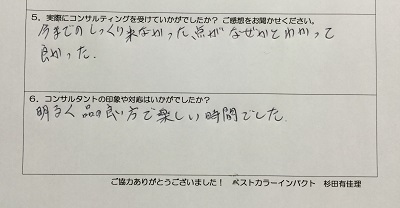 5．実際にコンサルティングを受けていかがでしたか？ ご感想をお聞かせください。
今までのしっくり来なかった点がなぜかとわかって
良かった.
6．コンサルタントの印象や対応はいかがでしたか？
明るく品の良い方で楽しい時間でした.
ご協力ありがとうございました！ ベストカラーインパクト 杉田有佳理